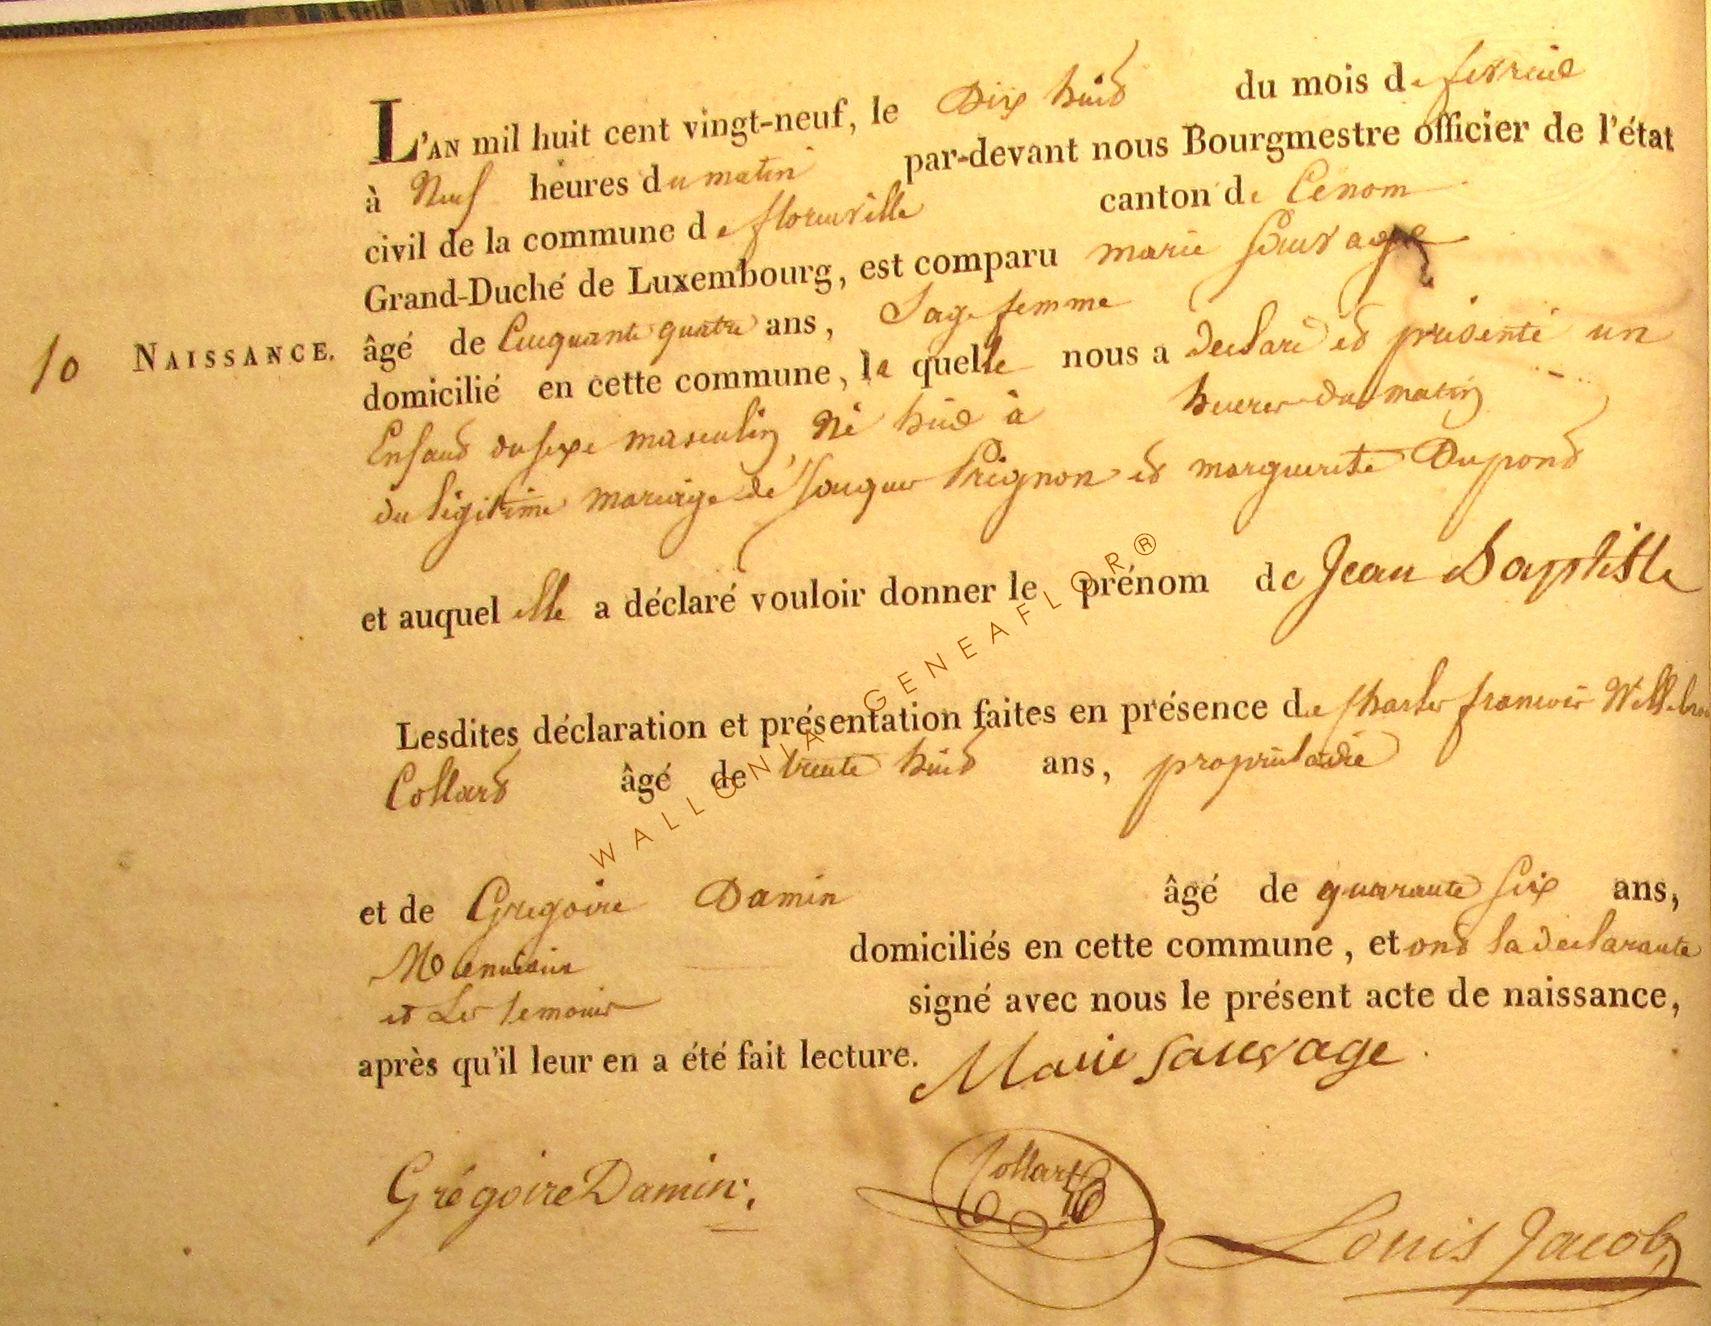 L'AN mil huit cent vingt-neuf, le Dix huit du mois de fevrier
à Neuf heures du matin par-devant nous Bourgmestre officier de l'état
civil de la commune de florenville canton de
Grand-Duché de Luxembourg, est comparu marie Sauvage
10 NAISSANCE. âgé de Cinquante quatre ans, Sage femme
domicilié en cette commune, la quelle nous a declaré et présenté un
Enfant du sexe masculin, Né à heures du matin
du légitime mariage de Prignon et marguerite Dupont
et auquel elle a déclaré vouloir donner le prénom de Jean Baptiste
Lesdites déclaration et présentation faites en présence de Charles francois
Collard âgé de trente huit ans, propriétaire
et de Gregoire Damin âgé de quarante Six ans,
Menuisier domiciliés en cette commune, et ont la declarante
et Les temoins signé avec nous le présent acte de naissance,
après qu'il leur en a été fait lecture. Marie Sauvage
Grégoire Damin. Collard Louis Jacob
WALLONIA GENEAFLOR®